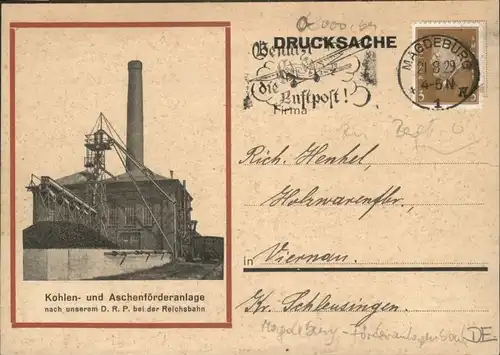 DRUCKSACHE
Benutzt
die Luftpost!
Firma
MAGDEBURG
8 29
4-5 N
1
Rich. Henkel,
Holzwarenfbr.,
in Viernau.
Kr. Schleusingen.
Kohlen- und Aschenförderanlage
nach unserem D. R. P. bei der Reichsbahn
Magdeburg - Förderanlagenbau
DE